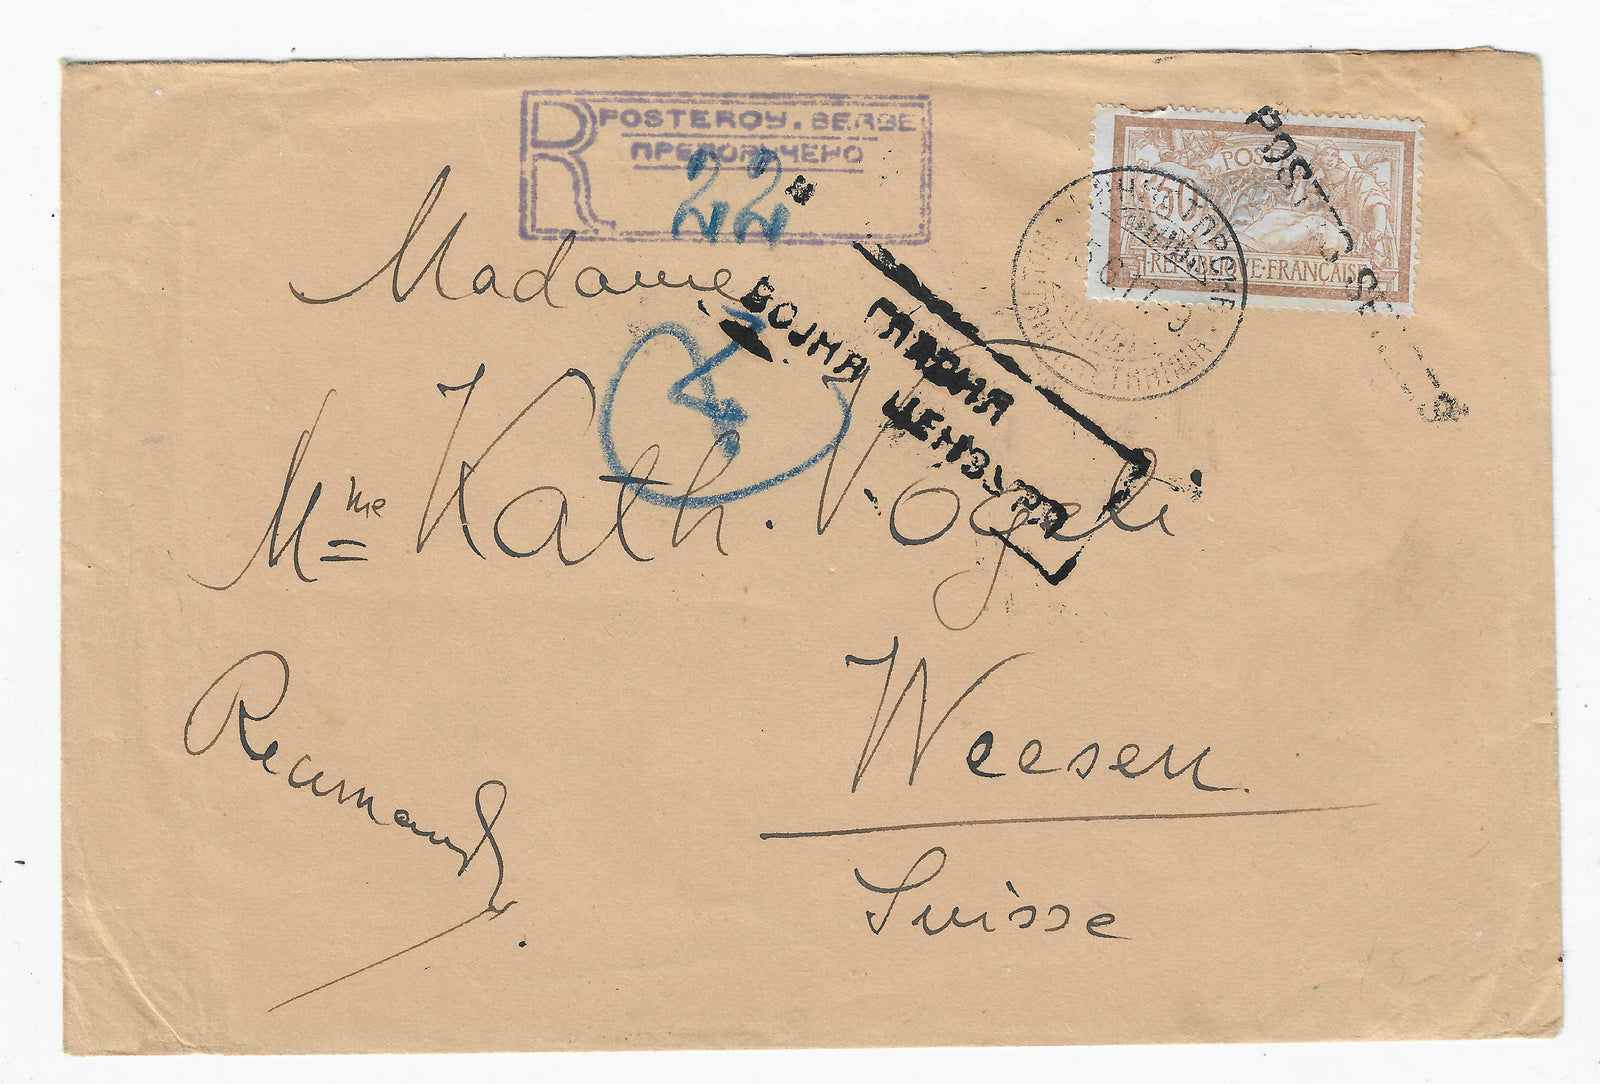 R POSTEROY. SERBE
ПРЕПОРУЧЕНО
22
50 POSTES
REPUBLIQUE FRANÇAISE
POSTES SE
Madame
ВОЈНА
ГЛАВНА
ЦЕНЗУРА
Mme Kath. Vögeli
Weesen
Suisse